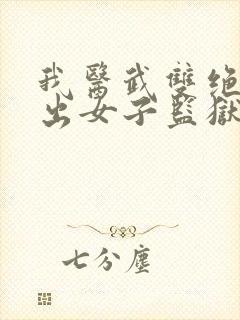 我醫武雙绝
出女子監獄
七分塵